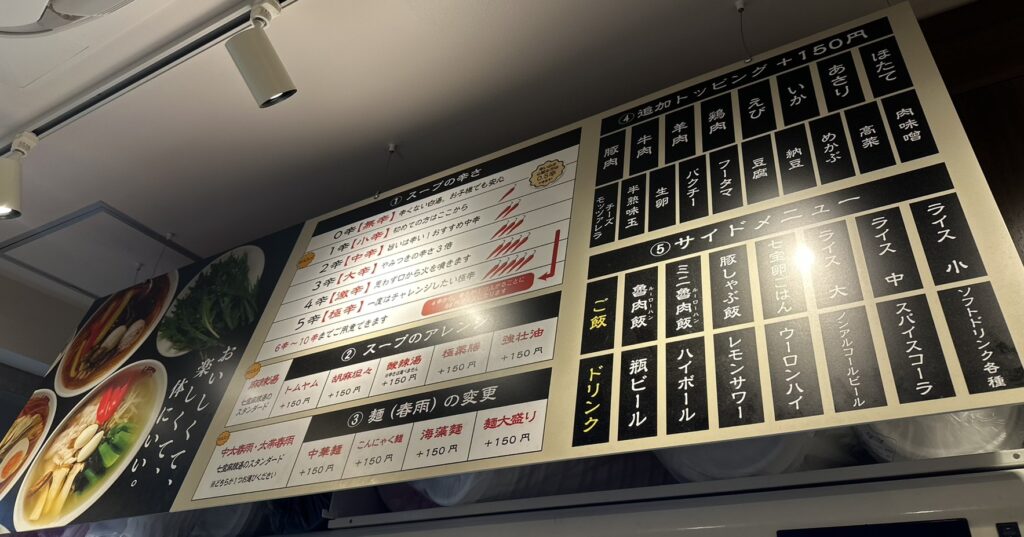 おいしくて、
楽しくて、
体にいい。
① スープの辛さ
0辛【無辛】辛くない白湯。お子様でも安心
1辛【小辛】初めての方はここから
2辛【中辛】旨いは辛い！おすすめ中辛
3辛【大辛】やみつきの辛さ3倍
4辛【激辛】思わず口から火を噴きます
5辛【極辛】一度はチャレンジしたい極辛
6辛～10辛までご用意できます
② スープのアレンジ
麻辣湯
七宝麻辣湯
のスタンダード
トムヤム
+150円
胡麻坦々
+150円
酸辣湯
+150円
極薬膳
+150円
強壮油
+150円
③ 麺（春雨）の変更
中太春雨・太帯春雨
七宝麻辣湯のスタンダード
※どちらか1つお選びください
中華麺
+150円
こんにゃく麺
+150円
海藻麺
+150円
麺大盛り
+150円
④ 追加トッピング +150円
豚肉
牛肉
羊肉
鶏肉
えび
いか
あさり
ほたて
チーズ
モッツァレラ
半熟味玉
生卵
パクチー
フータマ
豆腐
納豆
めかぶ
高菜
肉味噌
⑤ サイドメニュー
ご飯
魯肉飯
ルーローハン
ミニ魯肉飯
ルーローハン
豚しゃぶ飯
七宝卵ごはん
ライス 大
ライス 中
ライス 小
ドリンク
瓶ビール
ハイボール
レモンサワー
ウーロンハイ
ノンアルコールビール
スパイスコーラ
ソフトドリンク各種